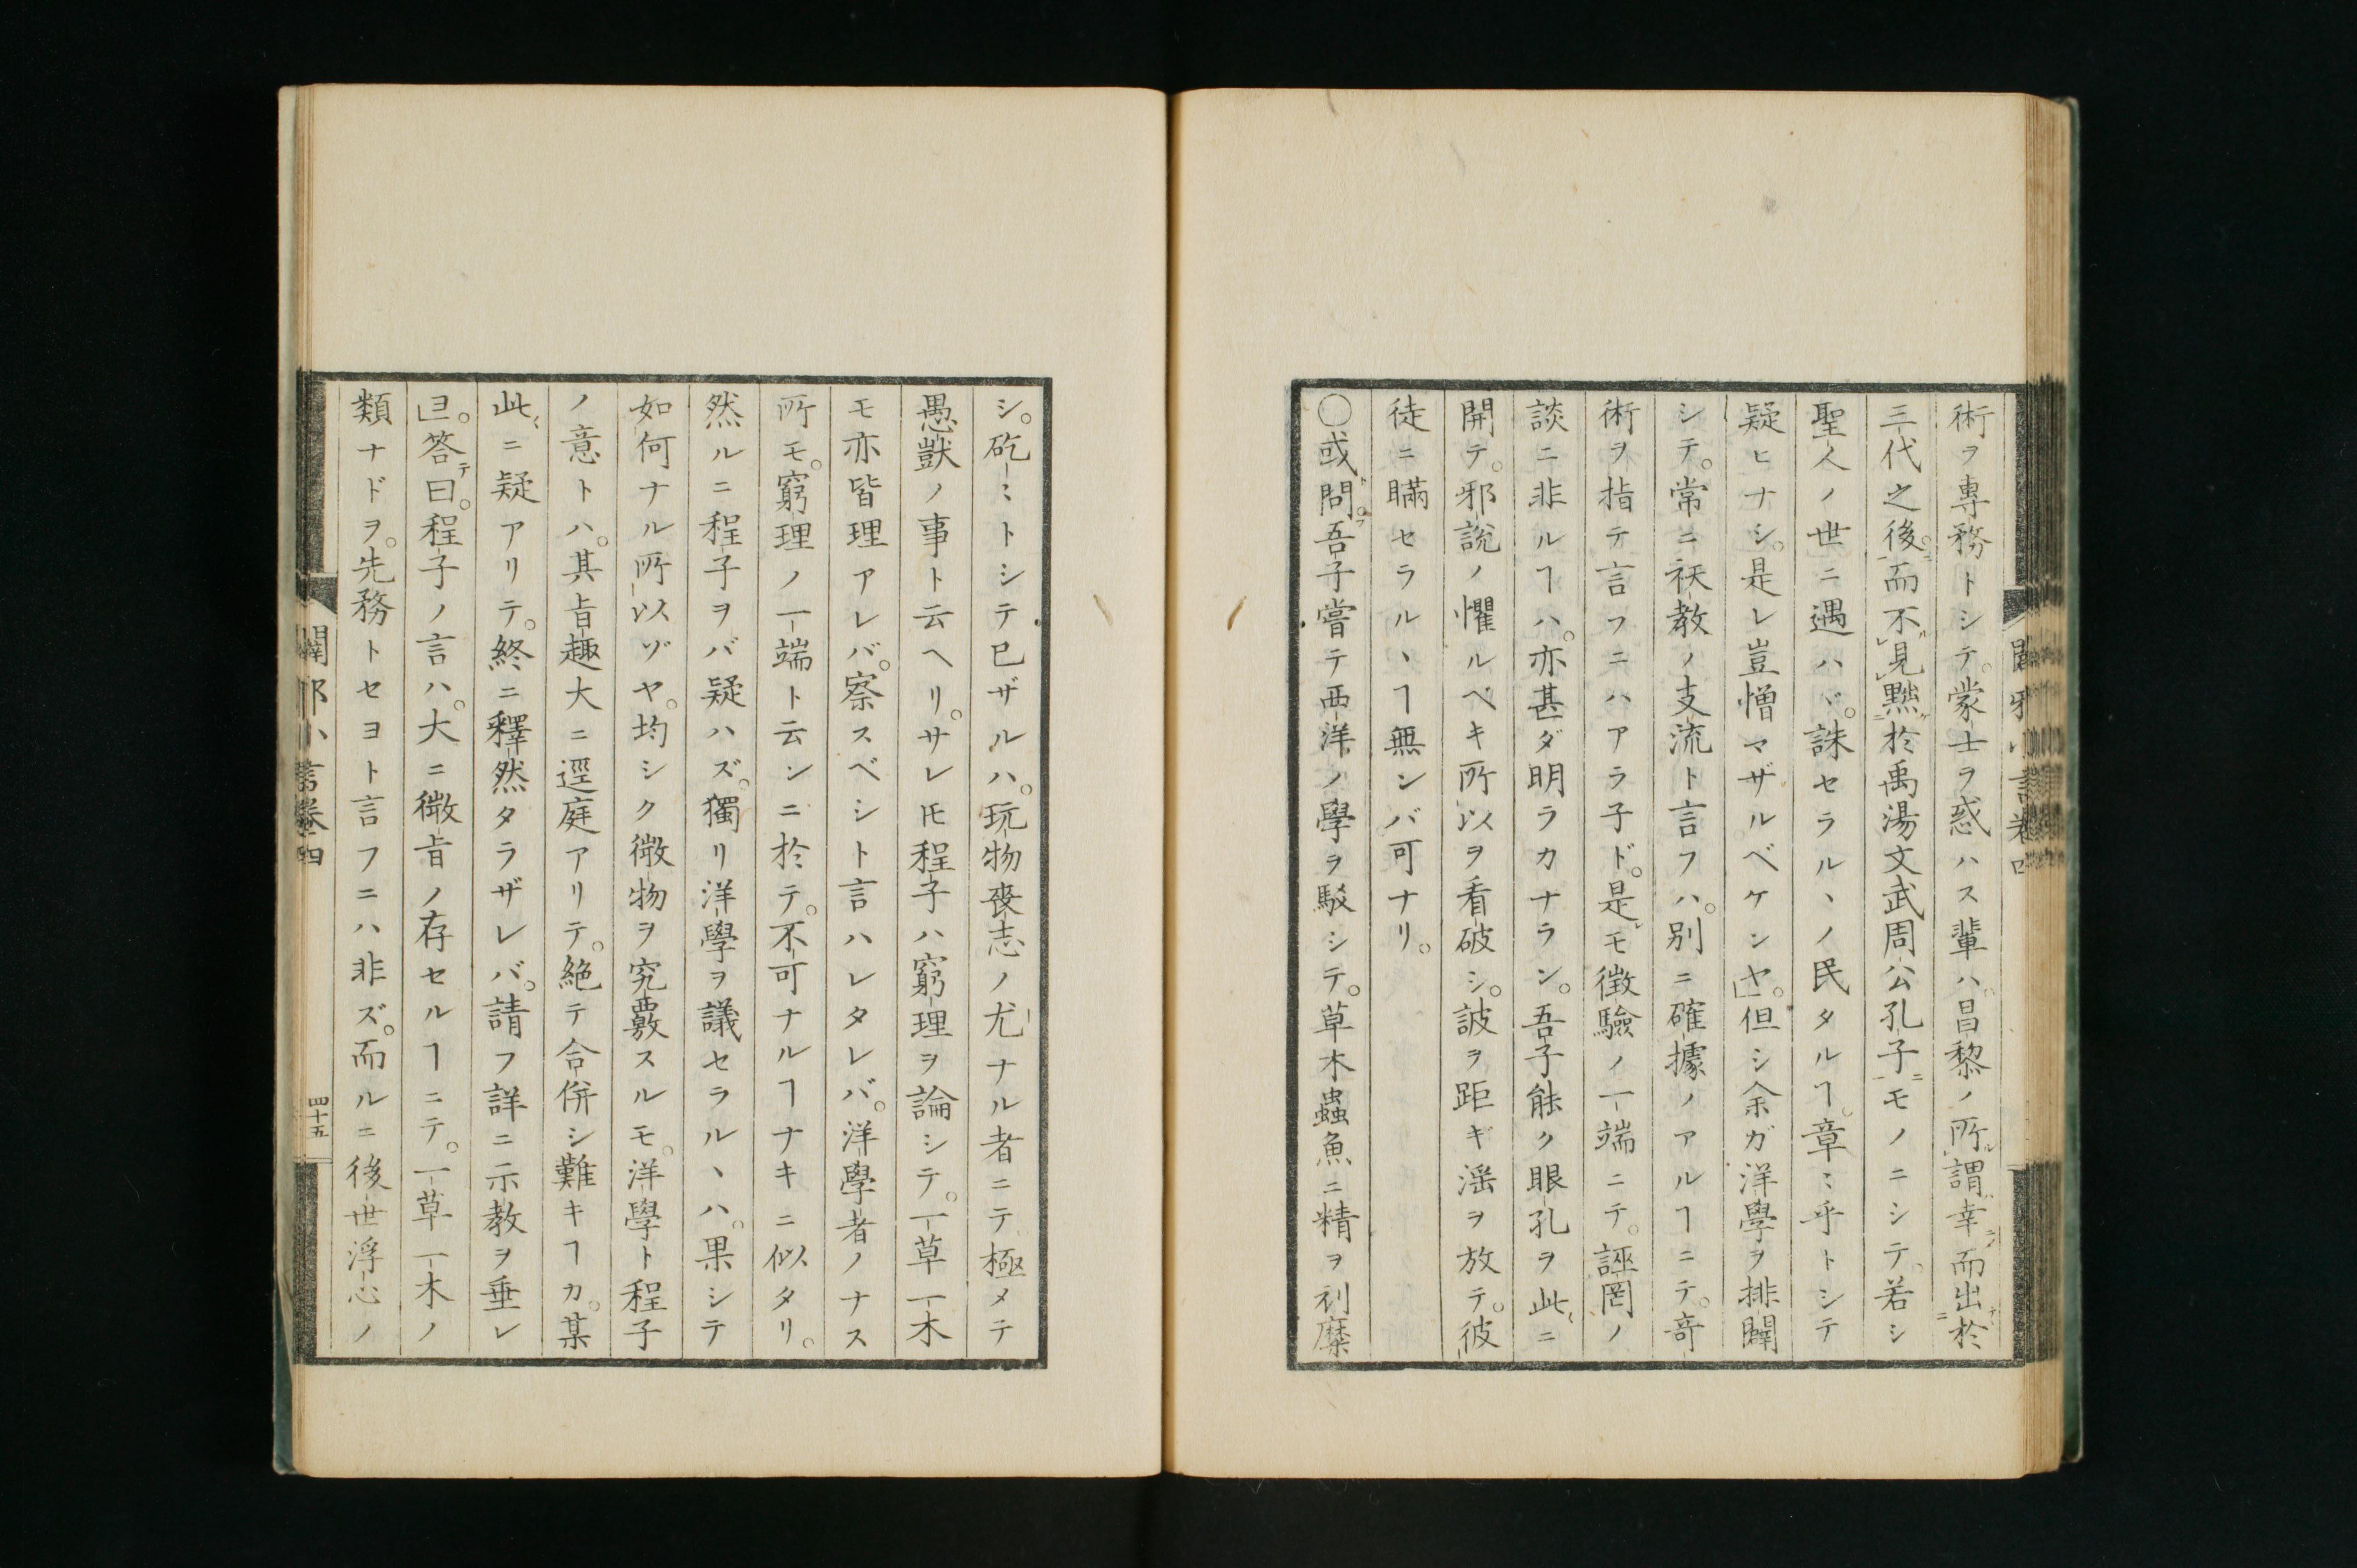 術ヲ專務トシテ。蒙士ヲ惑ハス輩ハ。昌黎ノ所謂幸而出於
三代之後。而不見黙於禹湯文武周公孔子モノニシテ。若シ
聖人ノ世ニ遇ハヾ。誅セラルヽノ民タルヿ。章〻乎トシテ
疑ヒナシ。是レ豈憎マザルベケンヤ。」但シ余ガ洋學ヲ排闢
シテ。常ニ祅教ノ支流ト言フハ。別ニ確據ノアルヿニテ。奇
術ヲ指テ言フニハアラ子ド。是モ徴驗ノ一端ニテ。誣罔ノ
談ニ非ルヿハ。亦甚ダ明ラカナラン。吾子能ク眼孔ヲ此ニ
開テ。邪説ノ懼ルベキ所以ヲ看破シ。詖ヲ距ギ滛ヲ放テ。彼
徒ニ瞞セラルヽヿ無ンバ可ナリ。
○或問。吾子嘗テ西洋ノ學ヲ駁シテ。草木蟲魚ニ精ヲ刓糜
シ。矻〻トシテ已ザルハ。玩物喪志ノ尤ナル者ニテ極メテ
愚獃ノ事ト云ヘリ。サレ𪜈程子ハ窮理ヲ論シテ。一草一木
モ亦皆理アレバ。察スベシト言ハレタレバ。洋學者ノナス
所モ。窮理ノ一端ト云ンニ於テ。不可ナルヿナキニ似タリ。
然ルニ程子ヲバ疑ハズ。獨リ洋學ヲ議セラルヽハ。果シテ
如何ナル所以ゾヤ。均シク微物ヲ究覈スルモ。洋學ト程子
ノ意トハ。其旨趣大ニ逕庭アリテ。絶テ合併シ難キヿカ。某
此ニ疑アリテ。終ニ釋然タラザレバ。請フ詳ニ示教ヲ垂レ
ヨ。」答テ曰。程子ノ言ハ。大ニ微旨ノ存セルヿニテ。一草一木ノ
類ナドヲ。先務トセヨト言フニハ非ズ。而ルニ後世浮心ノ
闢邪小言卷四
四十五